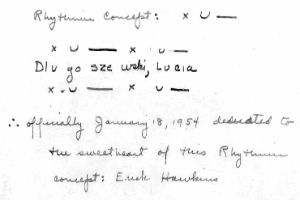 Rhythmic concept: x ∪ —
x ∪ — x ∪ —
Dlugoszewski, Lucia
x ∪ — x ∪ —
∴ officially January 18, 1954 dedicated to
the sweetheart of this Rhythmic
concept: Erick Hawkins